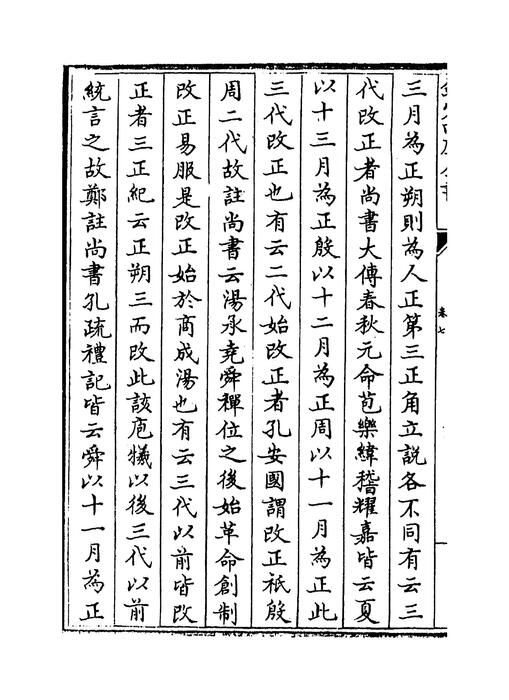 三月為正朔則為人正第三正角立說各不同有云三
代改正者尚書大傳春秋元命苞樂緯稽耀嘉皆云夏
以十三月為正殷以十二月為正周以十一月為正此
三代改正也有云二代始改正者孔安國謂改正秖殷
周二代故註尚書云湯承堯舜禪位之後始革命創制
改正易服是改正始於商成湯也有云三代以前皆改
正者三正紀云正朔三而改此該庖犧以後三代以前
統言之故鄭註尚書孔疏禮記皆云舜以十一月為正
卷七